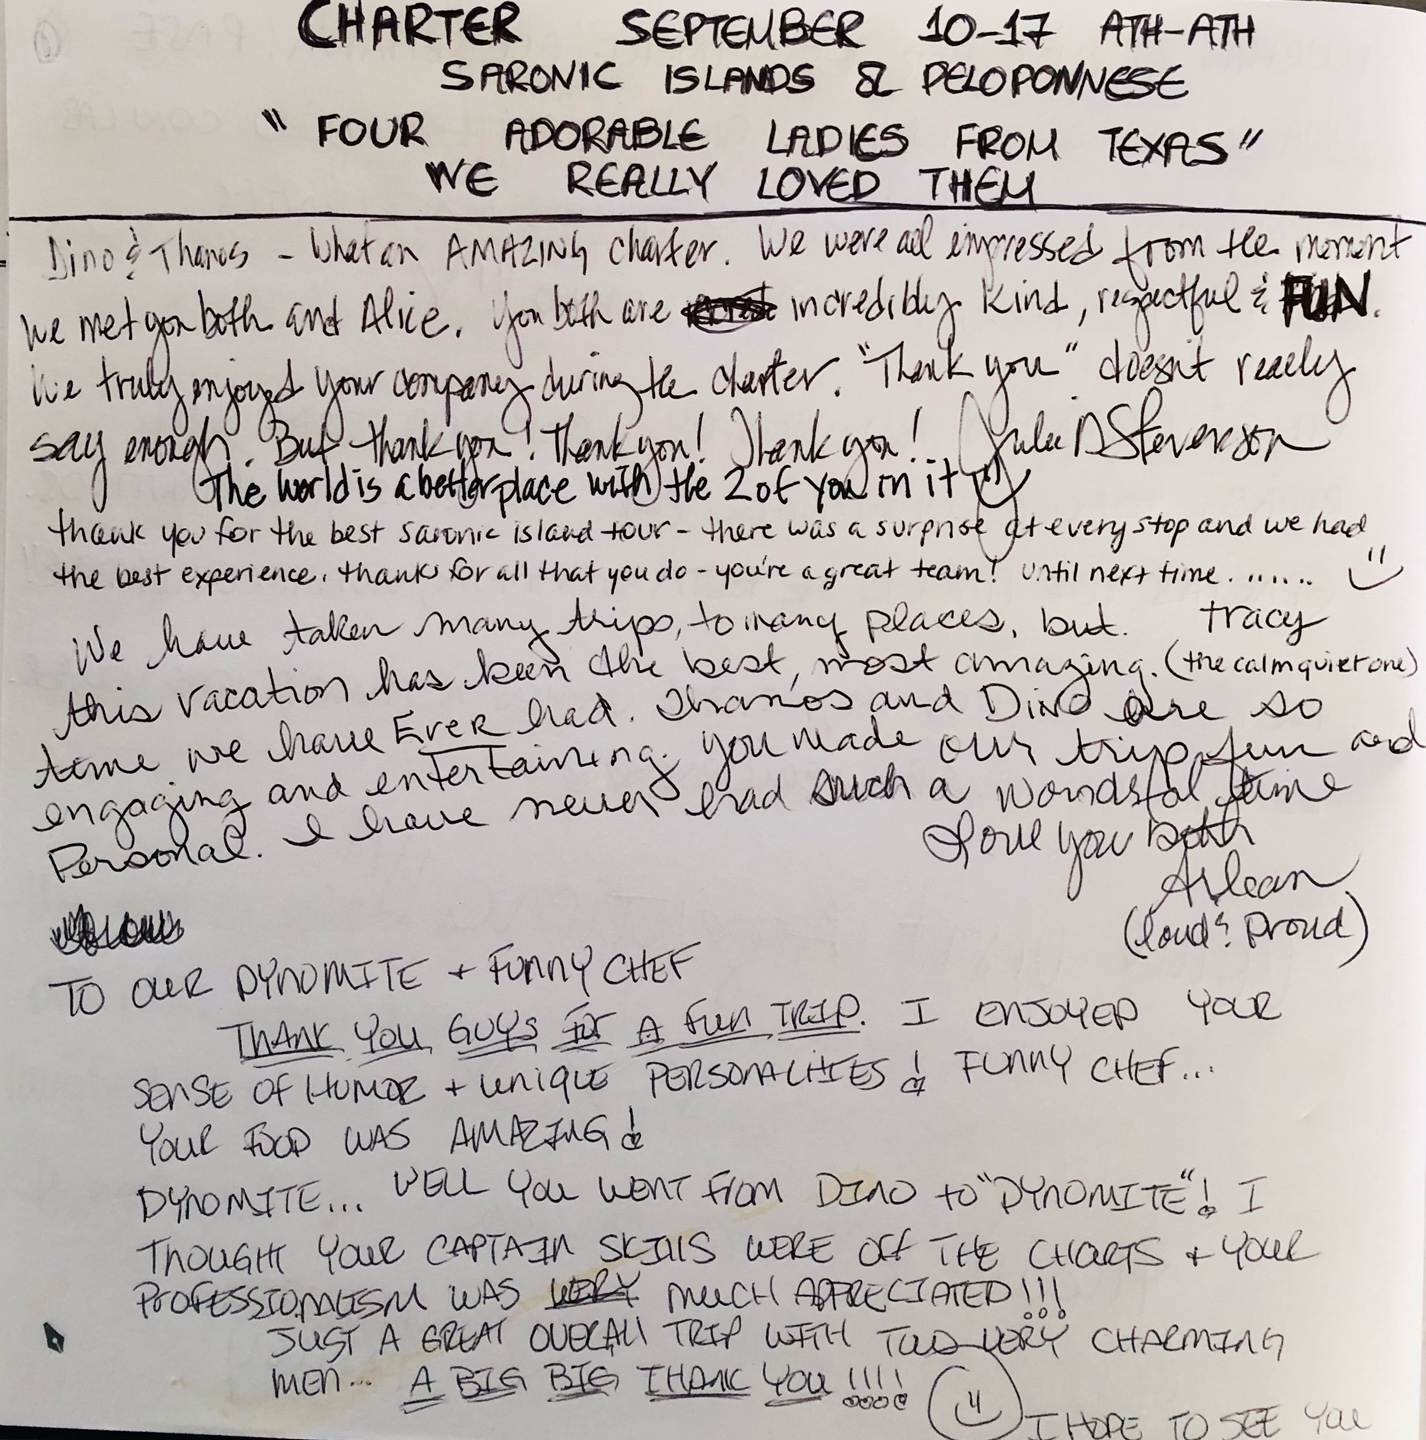 CHARTER SEPTEMBER 10-17 ATH-ATH
SARONIC ISLANDS & PELOPONNESE
"FOUR ADORABLE LADIES FROM TEXAS"
WE REALLY LOVED THEM
Dino & Thanos - What an AMAZING charter. We were all impressed from the moment
we met you both and Alice. You both are incredibly kind, respectful & FUN.
We truly enjoyed your company during the charter. "Thank you" doesn't really
say enough. But thank you! Thank you! Thank you! Julie D Stevenson
The world is a better place with the 2 of you in it
thank you for the best saronic island tour - there was a surprise at every stop and we had
the best experience. thanks for all that you do - you're a great team! until next time.......
We have taken many trips, to many places, but. tracy
this vacation has been the best, most amazing. (the calm quiet one)
time we have EVER had. Thanos and Dino are so
engaging and entertaining. you made our trip fun and
Personal. I have never had such a wondsful time
Love you both
Arlean
(loud & Proud)
TO OUR DYNOMITE + FUNNY CHEF
THANK YOU GUYS FOR A FUN TRIP. I ENJOYED YOUR
SENSE OF HUMOR + UNIQUE PERSONALITIES! FUNNY CHEF...
YOUR FOOD WAS AMAZING!
DYNOMITE... WELL YOU WENT FROM DINO TO "DYNOMITE"! I
THOUGHT YOUR CAPTAIN SKILLS WERE OFF THE CHARTS + YOUR
PROFESSIONALISM WAS VERY MUCH APPRECIATED!!!
JUST A GREAT OVERALL TRIP WITH TWO VERY CHARMING
MEN... A BIG BIG THANK YOU!!!!
I HOPE TO SEE YOU